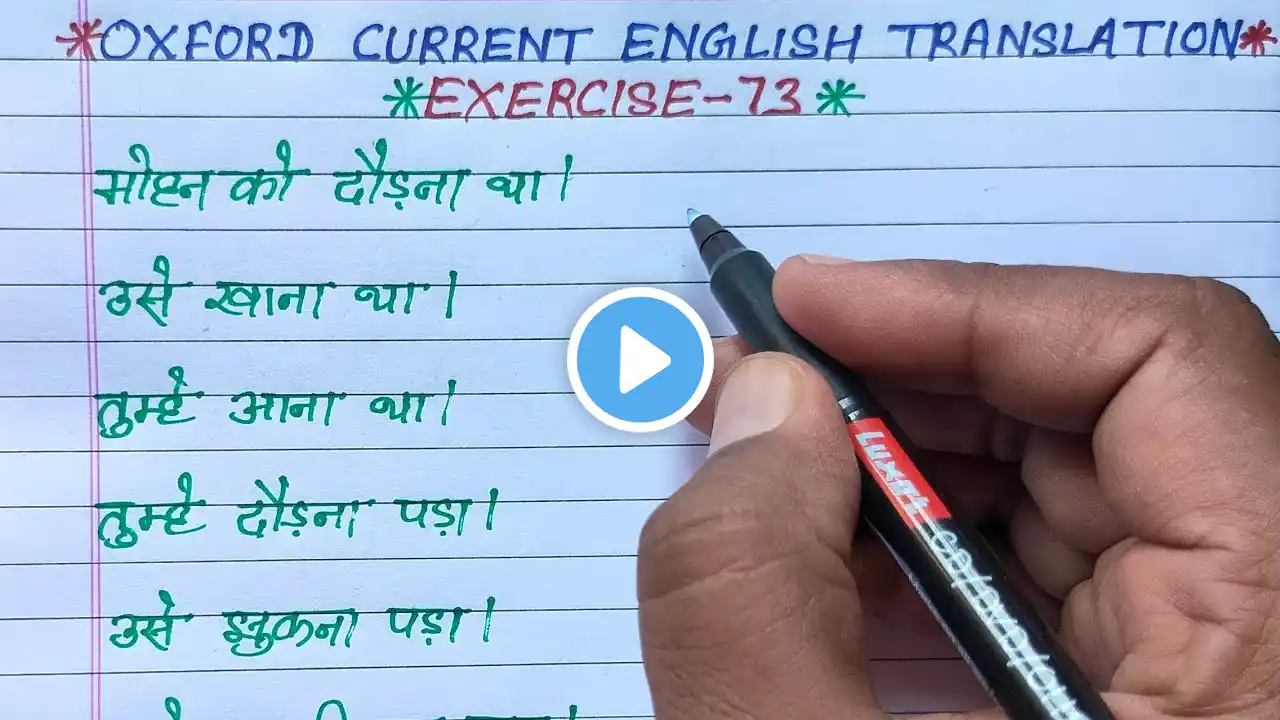 *OXFORD CURRENT ENGLISH TRANSLATION*
*EXERCISE-73*
मोहन को दौड़ना था।
उसे खाना था।
तुम्हे आना था।
तुम्हे दौड़ना पड़ा।
उसे झुकना पड़ा।
Luxor